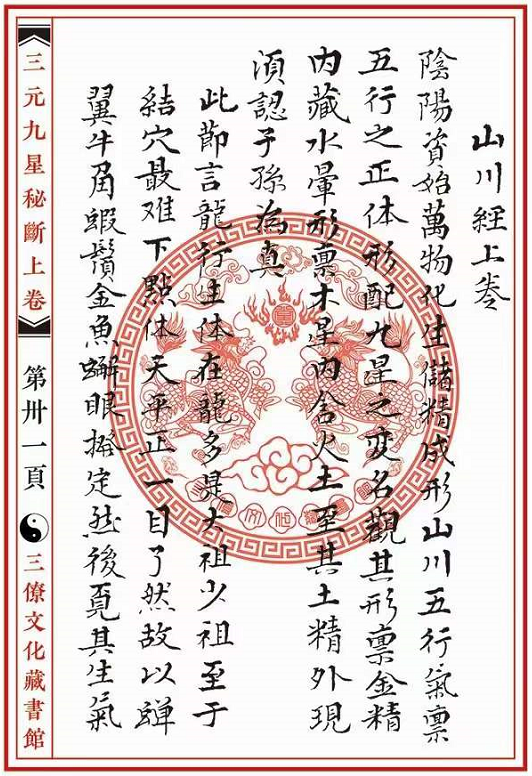 山川經上卷
陰陽資始萬物化生儲精成形山川五行氣禀
五行之正体形配九星之变名觀其形禀金精
内藏水暈形禀木星内含火土至其土精外現
須認子孫為真
此節言龍行主体在龍多是太祖少祖至于
結穴最难下點体天平正一目了然故以蟬
翼牛角蝦鬚金魚蠏眼擬定然後覓其生氣
三元九星秘斷上卷
第卅一頁
三僚文化藏書館